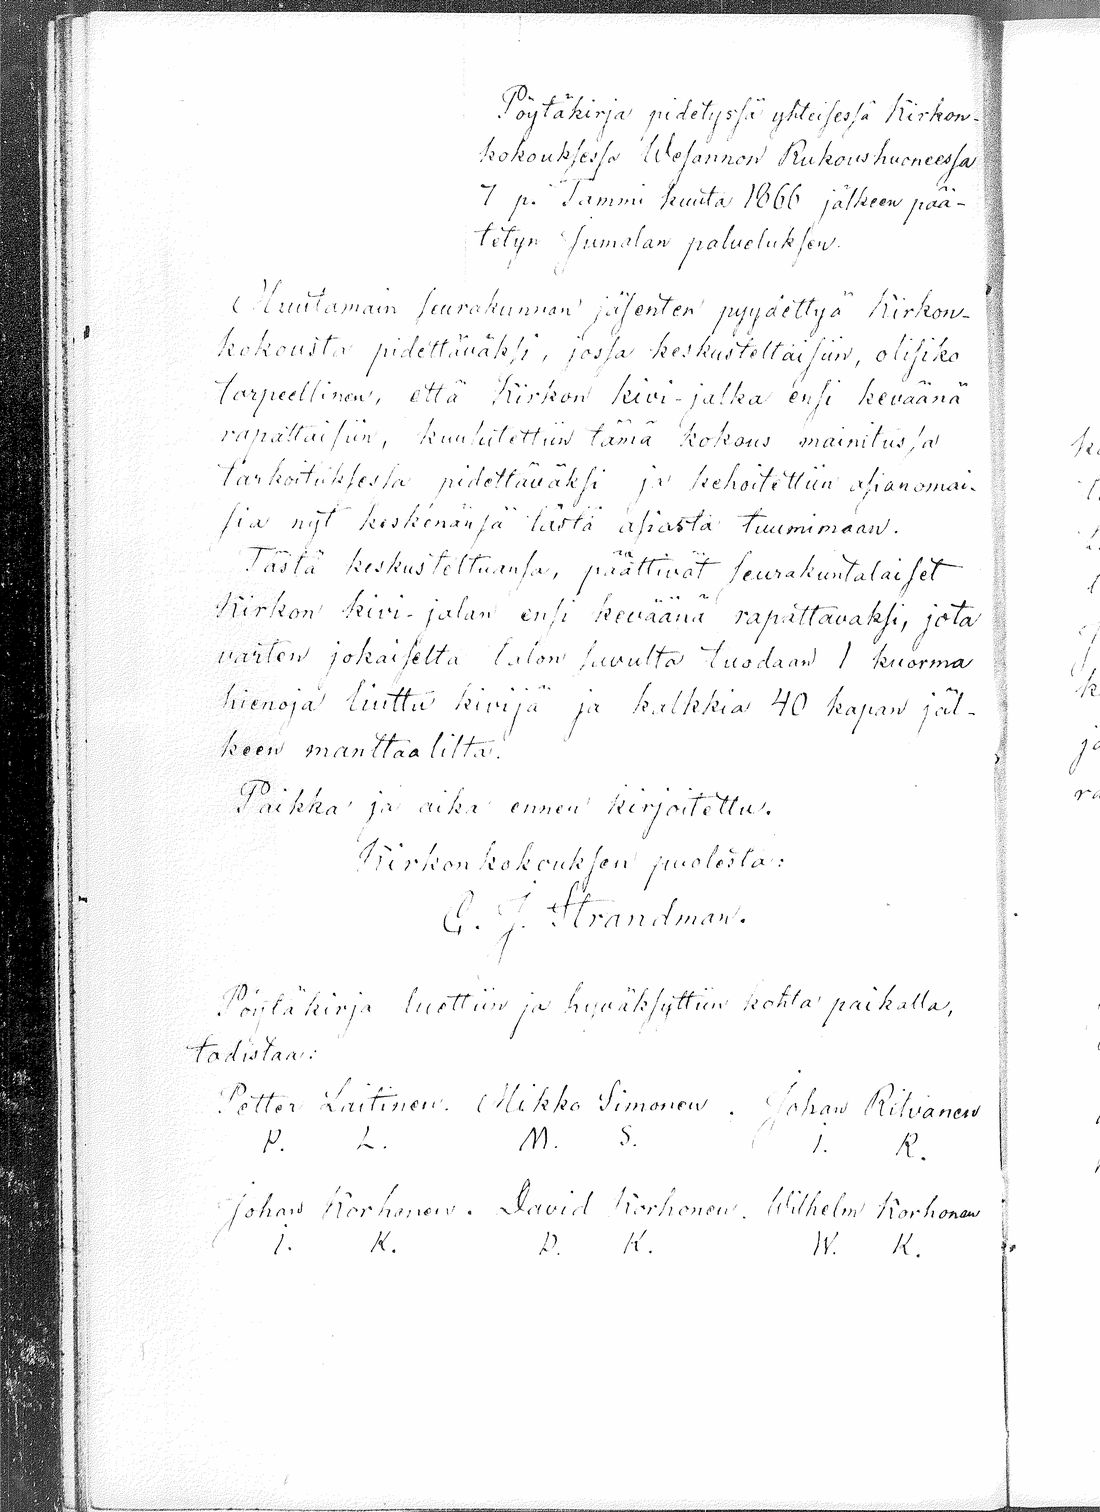 Pöytäkirja pidetyssä yhteisessä Kirkon-
kokouksessa Wesannon Rukoushuoneessa
7 p. Tammi kuuta 1866 jälkeen pää-
tetyn Jumalan palveluksen.
Muutamain seurakunnan jäsenten pyydettyä Kirkon-
kokousta pidettäväksi, jossa keskusteltaisiin, olisiko
tarpeellinen, että Kirkon kivi-jalka ensi keväänä
rapattaisiin, kuulutettiin tämä kokous mainitussa
tarkoituksessa pidettäväksi ja kehoitettiin asianomai-
sia nyt keskenänsä tästä asiasta tuumimaan.
Tästä keskusteltuansa, päättivät seurakuntalaiset
Kirkon kivi-jalan ensi keväänä rapattavaksi, jota
varten jokaiselta talon savulta tuodaan 1 kuorma
hienoja liuttu kivijä ja kalkkia 40 kapan jäl-
keen manttaalilta.
Paikka ja aika ennen kirjoitettu.
Kirkonkokouksen puolesta:
C. J. Strandman.
Pöytäkirja luettiin ja hyväksyttiin kohta paikalla,
todistaa:
Petter Laitinen. Mikko Simonen. Johan Ritvanen
P. L. M. S. J. R.
Johan Korhonen. David Korhonen. Wilhelm Korhonen
J. K. D. K. W. K.